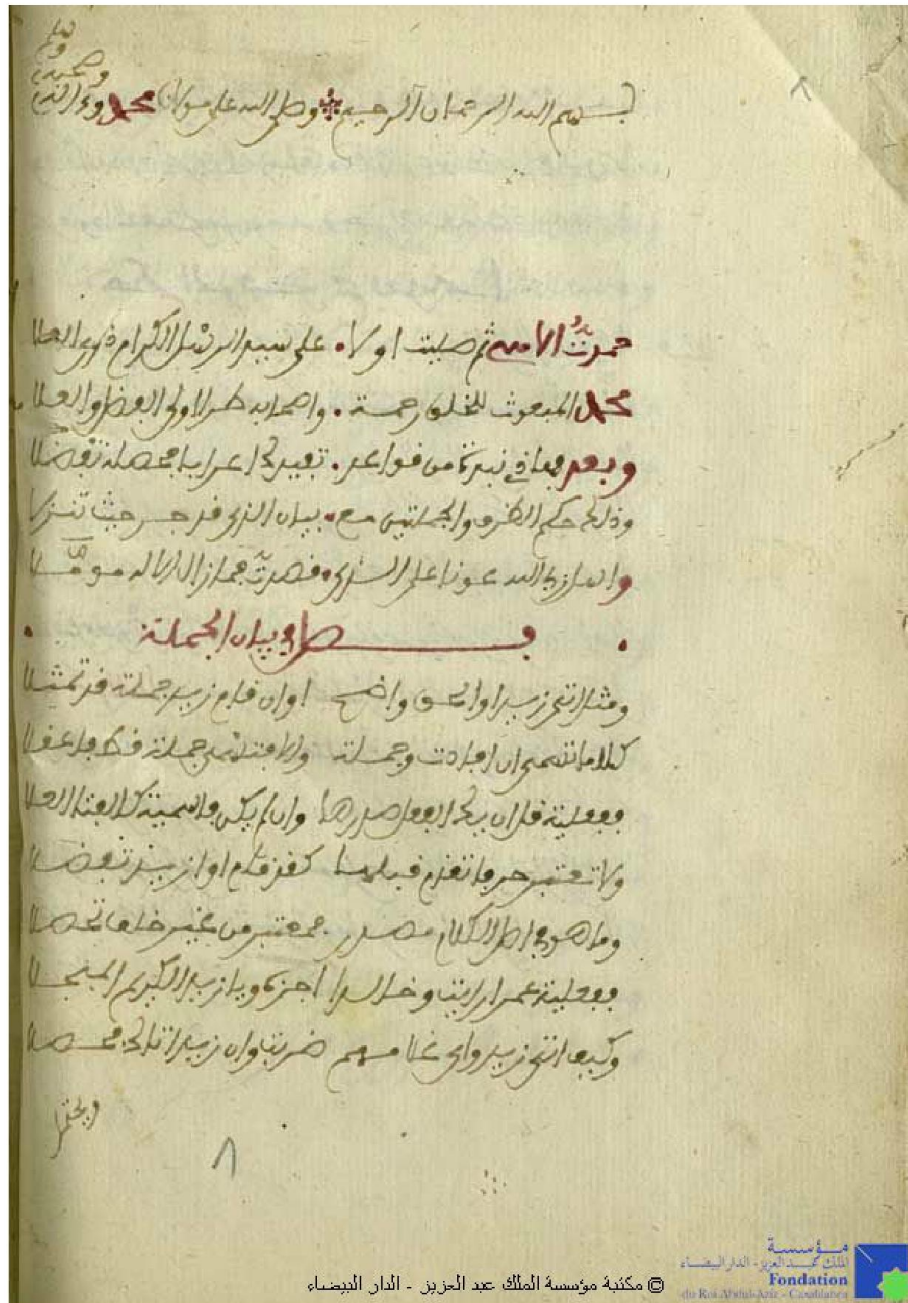 بسم الله الرحمان الرحيم وصلى الله على مولانا محمد وءاله
وصحبه
وسلم
٨
حمدت الاهي ثم صليت اولا على سيد الرسل الكرام ذوي العلا
محمد المبعوث للخلق رحمة واصحابه طرا اولي الفضل والعلا
وبعد فهاذي نبذة من قواعد تفيدك اعرابا محصلة تفضلا
وذلك حكم الظرف والجملتين مع بيان الذي قد جر حيث تنزلا
والله ارجو عونا على الذي قصدت فما زال الاله مؤملا
فصل في بيان الجملة
ومثل اتى زيد او الحق واضح او ان قام زيد جملة قد تمثلا
كلاما تسمى ان افادت وجملة والا فتسمى جملة فقط فاعقلا
ففعلية قل ان يك الفعل صدرها وان لم يكن فاسمية كالفتى العلا
ولا تعتبر حرفا تقدم قبلها كقد قام او ان زيد تفضلا
وما هو في اصل الكلام مصدر فمعتبر من غير خلف تحصلا
ففعلية عمرا رايت وخالدا اجزه ويا زيد الكريم المبجلا
وكيف اتى زيد واي غلامهم ضربت وان زيد اتاك محصلا
٨
© مكتبة مؤسسة الملك عبد العزيز - الدار البيضاء
مؤسسة
الملك عبد العزيز - الدار البيضاء
Fondation
du Roi Abdul-Aziz - Casablanca